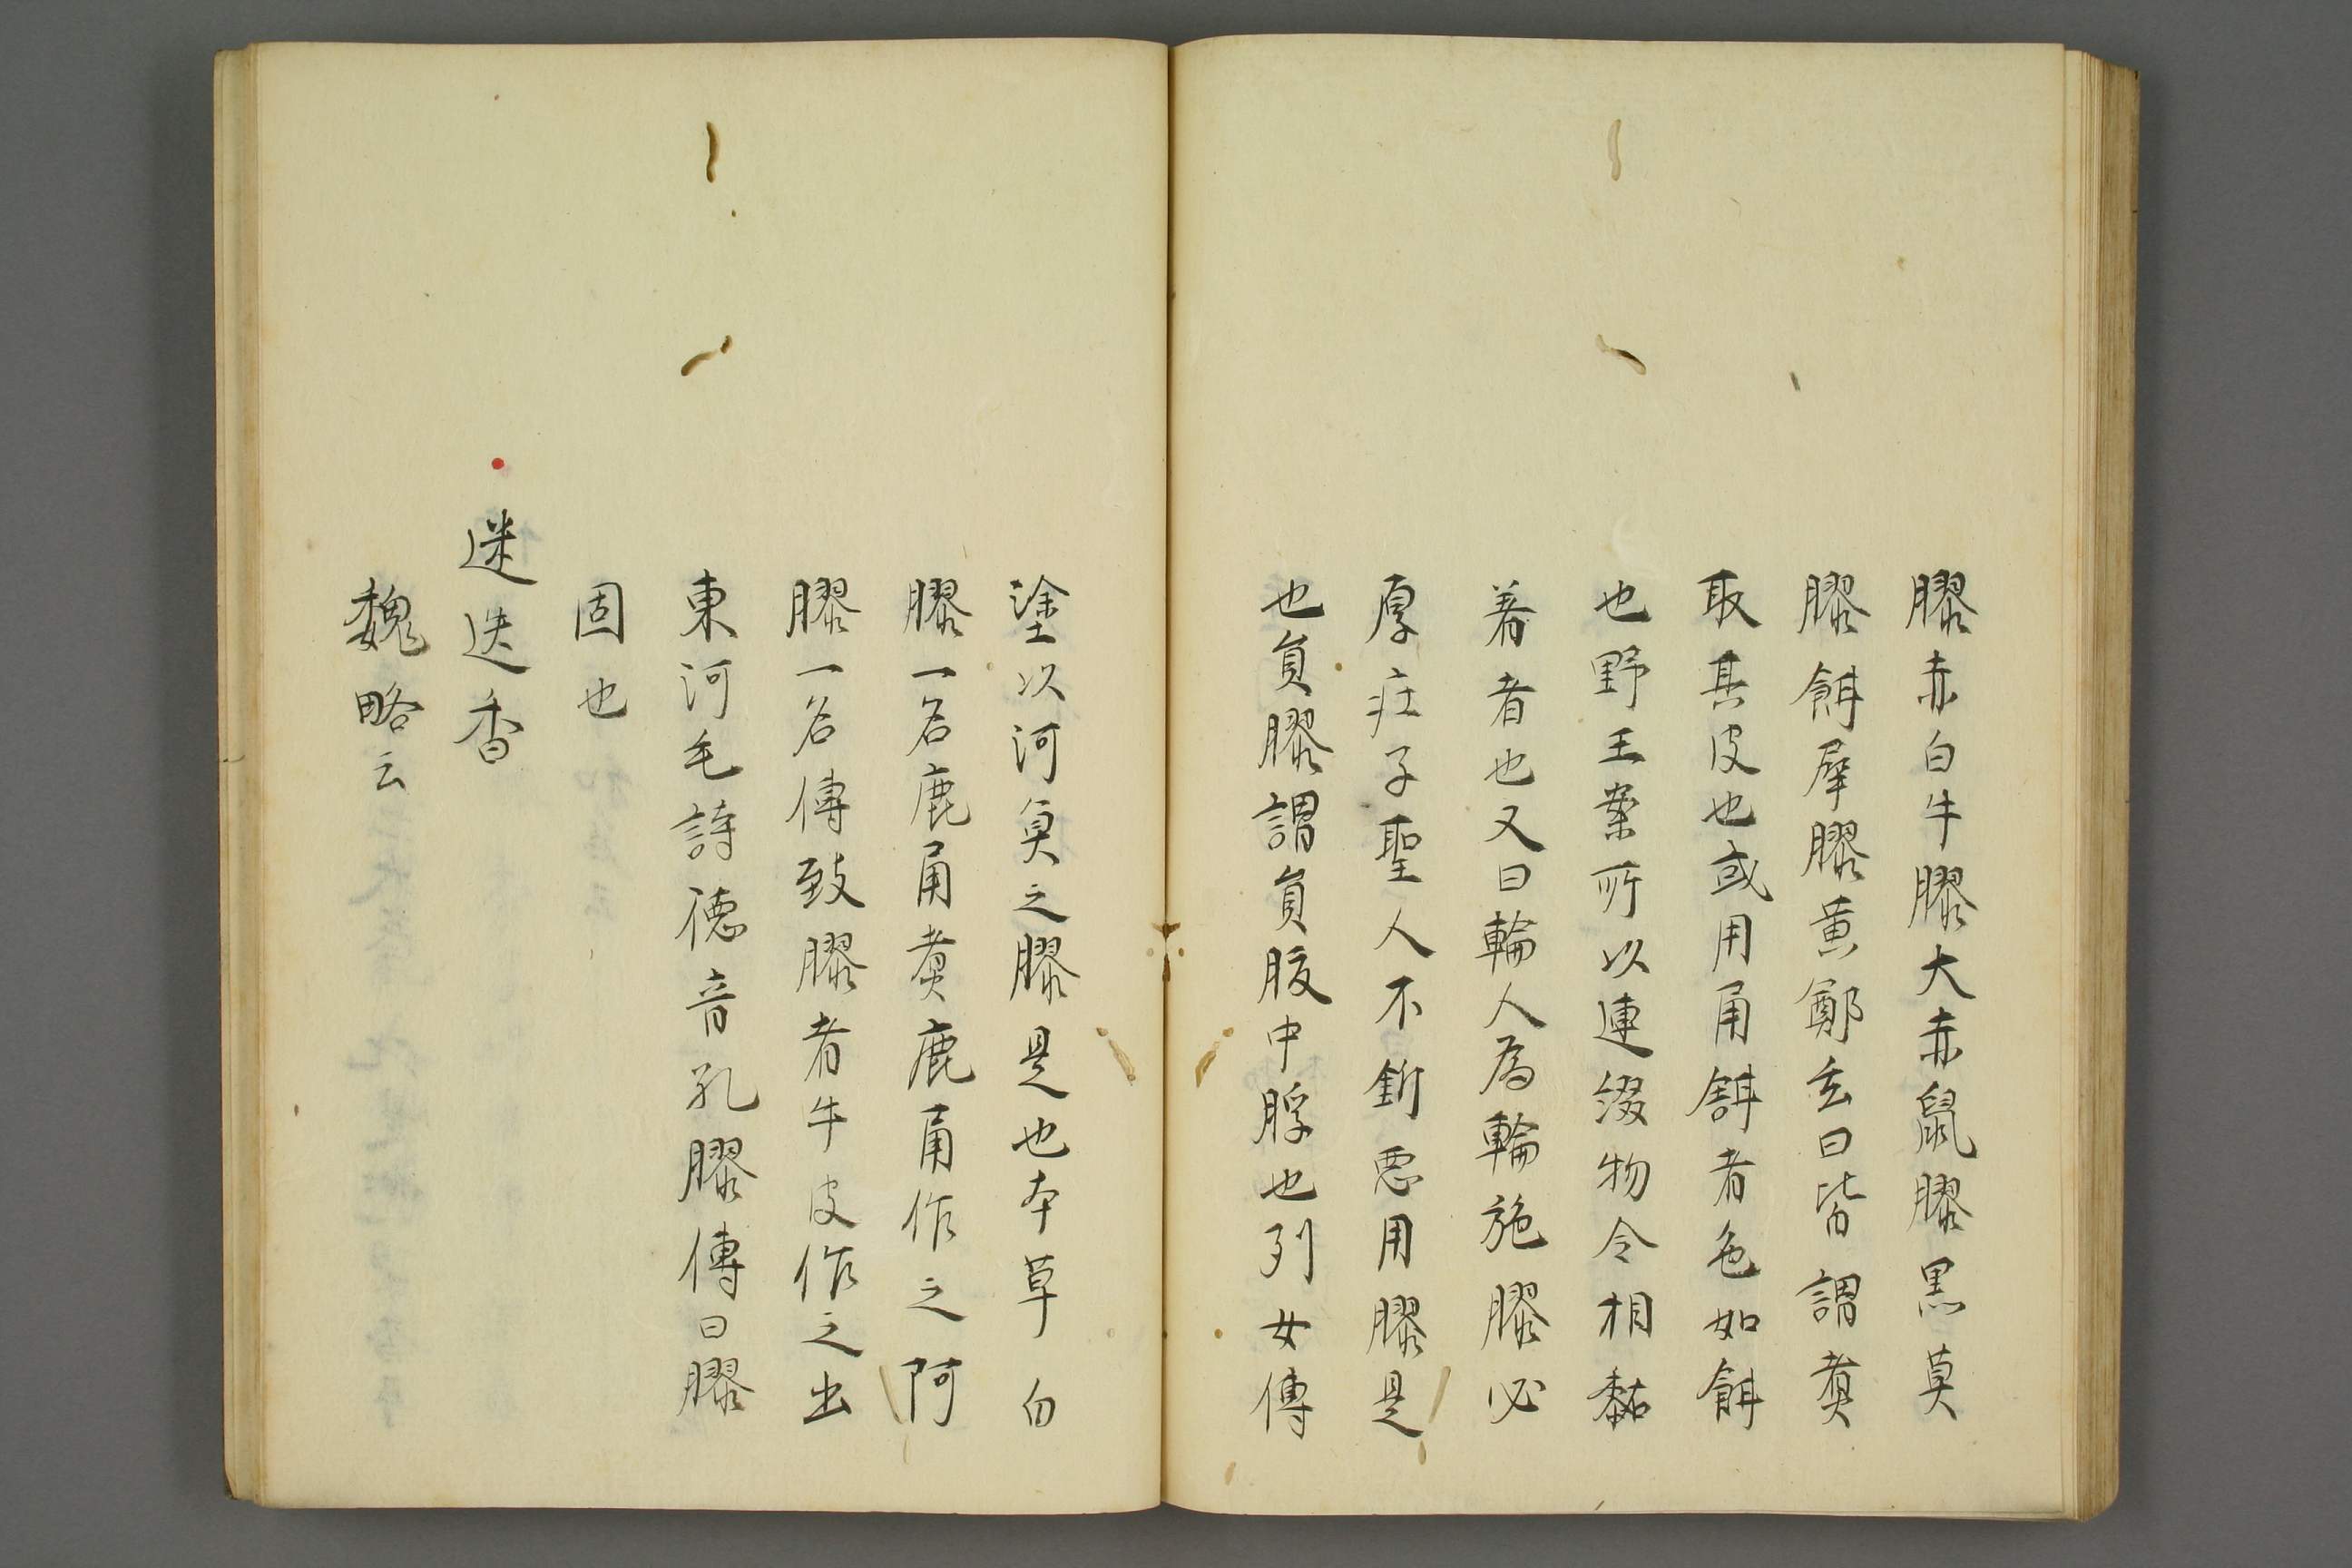 膠赤白牛膠大赤鼠膠黒莫
膠餌犀膠黄鄭玄曰皆謂煑
取其皮也或用角餌者色如餌
也野王案所以連綴物令相黏
著者也又曰輪人為輪施膠必
厚疘子聖人不斲悪用膠是
也負膠謂負腹中脬也列女傳
塗以河魚之膠是也本草白
膠一名鹿角煑鹿角作之阿
膠一名傅致膠者牛皮作之出
東河毛詩徳音孔膠傳曰膠
固也
迷迭香
魏略云